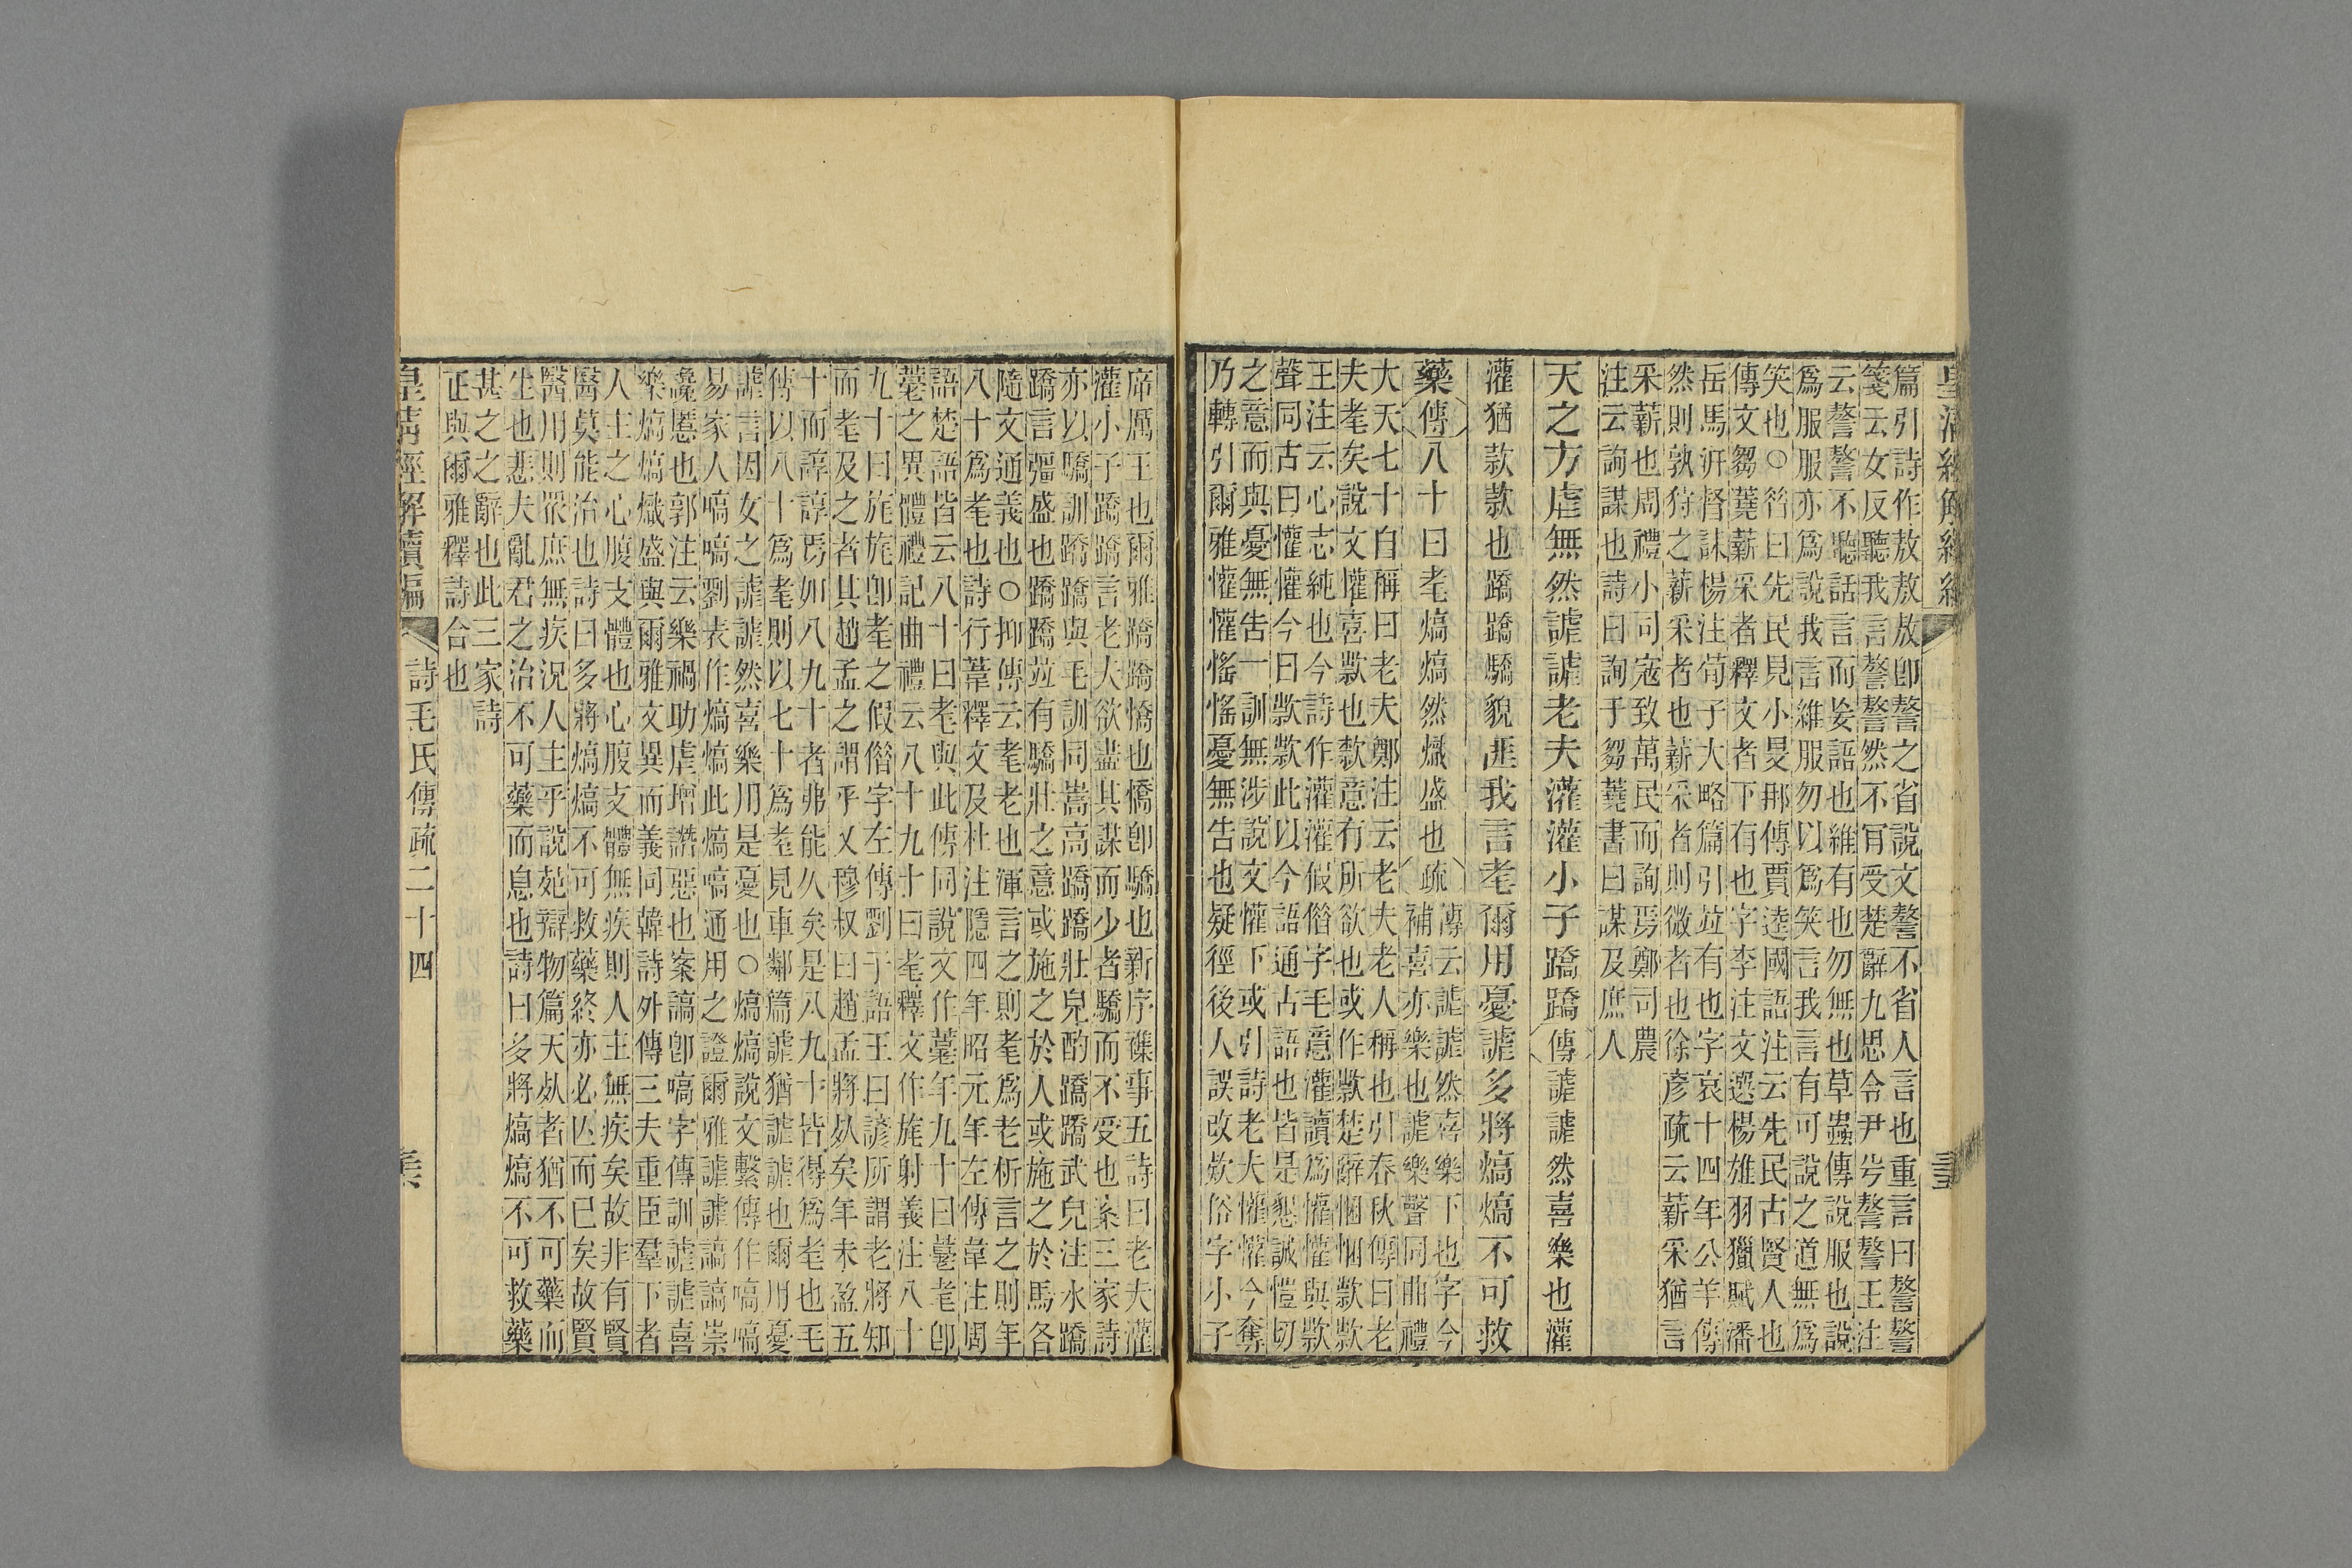 皇清經解續編
篇引詩作敖敖卽謷之省說文謷不省人言也重言曰謷謷
箋云女反聽我言謷謷然不肯受楚辭九思令尹兮謷謷王注
云謷謷不聽話言而妄語也維有也勿無也草蟲傳說服也說
爲服服亦爲說我言維服勿以爲笑言我言有可說之道無爲
笑也○咎曰先民見小旻邢傳賈逵國語注云先民古賢人也
傳文芻蕘薪采者釋文者下有也字李注文選楊雄羽獵賦潘
岳馬汧督誄楊注荀子大略篇引竝有也字哀十四年公羊傳
然則孰狩之薪采者也薪采者則微者也徐彥疏云薪采猶言
采薪也周禮小司寇致萬民而詢焉鄭司農
注云詢謀也詩曰詢于芻蕘書曰謀及庶人
天之方虐無然謔謔老夫灌灌小子蹻蹻傳謔謔然喜樂也灌
灌猶款款也蹻蹻驕貌匪我言耄爾用憂謔多將熇熇不可救
藥傳八十曰耄熇熇然熾盛也疏傳云謔謔然喜樂下也字今
補喜亦樂也謔樂聲同曲禮
大夫七十自稱曰老夫鄭注云老夫老人稱也引春秋傳曰老
夫耄矣說文懽喜歀也欶意有所欲也或作歀楚辭悃悃歀歀
王注云心志純也今詩作灌灌假俗字毛意灌讀爲懽懽與歀
聲同古曰懽懽今曰歀歀此以今語通古語也皆是懇誠愷切
之意而與憂無告一訓無涉說文懽下或引詩老夫懽懽今奪
乃轉引爾雅懽懽愮愮憂無告也疑徑後人誤改欶俗字小子
席厲王也爾雅蹻蹻憍也憍卽驕也新序襍事五詩曰老夫灌
灌小子蹻蹻言老夫欲盡其謀而少者驕而不受也案三家詩
亦以驕訓蹻蹻與毛訓同嵩高蹻蹻壯皃酌蹻蹻武皃注水蹻
蹻言彊盛也蹻蹻竝有驕壯之意或施之於人或施之於馬各
隨文通義也○抑傳云耄老也渾言之則耄爲老析言之則年
八十爲耄也詩行葦釋文及杜注隱四年昭元年左傳韋注周
語楚語皆云八十曰耄與此傳同說文作薹年九十曰薹耄卽
薹之異體禮記曲禮云八十九十曰耄釋文作旄射義注八十
九十曰旄旄卽耄之假借字左傳劉子語王曰諺所謂老將知
而耄及之者其趙孟之謂乎又穆叔曰趙孟將死矣年未盈五
十而諄諄焉如八九十者弗能久矣是八九十皆得爲耄也毛
傳以八十爲耄則以七十爲耋見車鄰篇謔猶謔也爾用憂
謔言因女之謔謔然喜樂用是憂也○熇熇說文繫傳作嗃嗃
易家人嗃嗃劉表作熇熇此熇嗃通用之證爾雅謔謔謞謞崇
讒慝也郭注云樂禍助虐增譖惡也案謞卽嗃字傳訓謔謔喜
樂熇熇熾盛與爾雅文異而義同韓詩外傳三夫重臣羣下者
人主之心腹支體也心腹支體無疾則人主無疾矣故非有賢
醫莫能治也詩曰多將熇熇不可救藥終亦必亡而已矣故賢
醫用則眾庶無疾況人主乎說苑辯物篇夫死者猶不可藥而
生也悲夫亂君之治不可藥而息也詩曰多將熇熇不可救藥
甚之之辭也此三家詩
正與爾雅釋詩合也
皇清經解續編 詩毛氏傳疏二十四